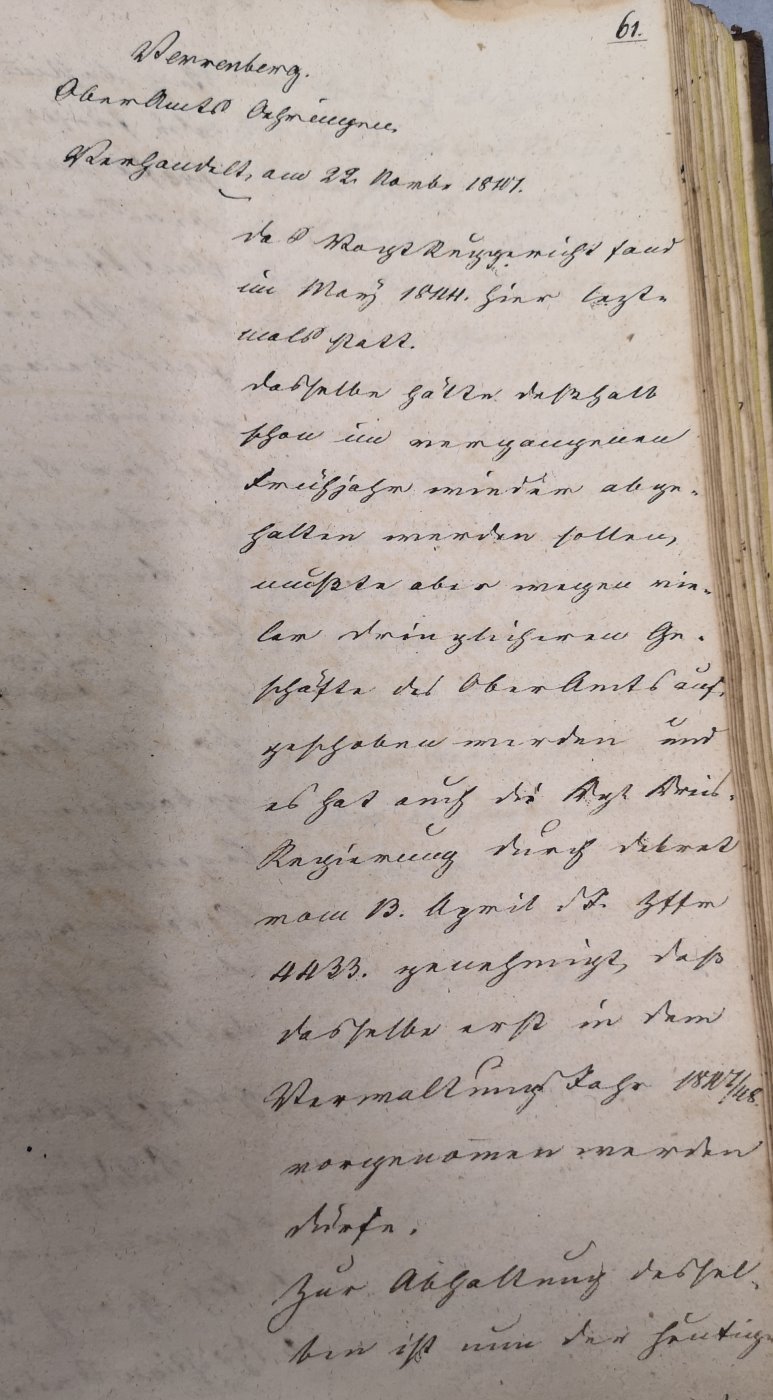 61.
Verrenberg.
OberAmts Oehringen.
Verhandelt, am 22. Novbr 1847.
das VogtRuggericht fand
im März 1844. hier lezt-
mals statt.
dasselbe hätte deßhalb
schon im vergangenen
Frühjahr wieder abge-
halten werden sollen,
mußte aber wegen vie-
ler dringlicheren Ge-
schäfte des OberAmts auf-
geschoben werden und
es hat auch die Kgl. Kreis-
Regierung durch Dekret
vom 13. April d.J. Ziffer
4433. genehmigt, daß
dasselbe erst in dem
VerwaltungsJahr 1847/48.
vorgenommen werden
dürfe.
Zur Abhaltung dessel-
ben ist nun der heutige